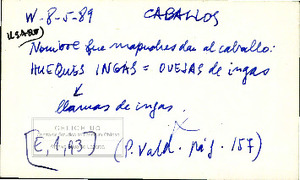 W-8-5-89 CABALLOS
Nombre que mapuches dan al caballo:
HUEQUES INGAS = OVEJAS de ingas
llamas de ingas.
[E, 1, 93] (P. Vald. pág. 157)